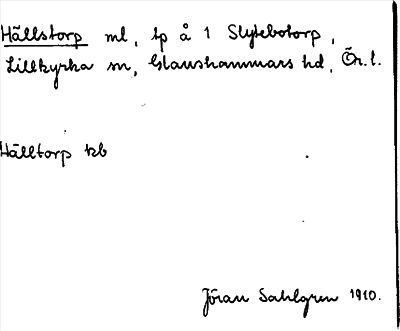 Hällstorp ml, tp å 1 Slytebotorp,
Lillkyrka sn, Glanshammars hd, Ör. l.
Hälltorp kb
Jöran Sahlgren 1910.